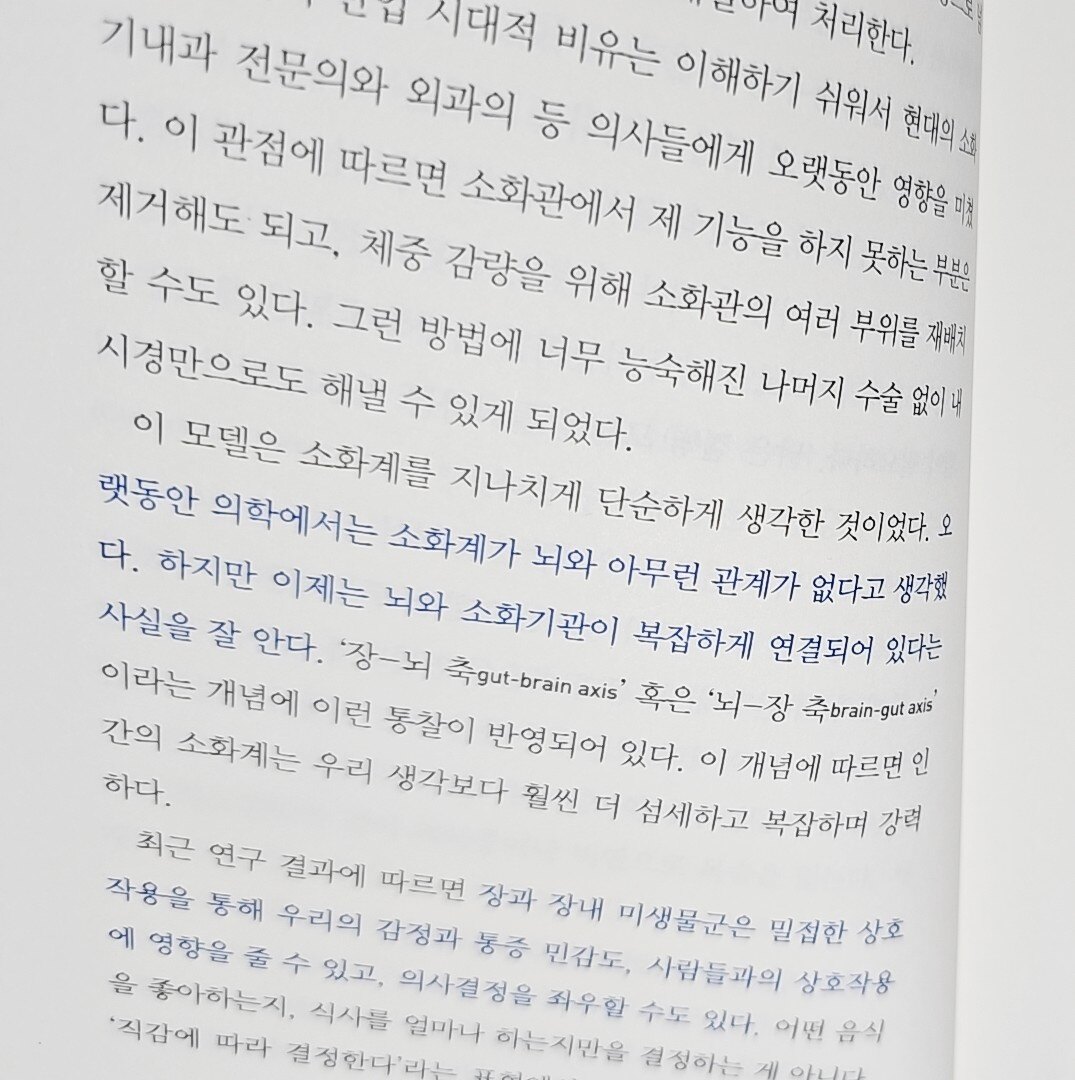 처리한다.
시대적 비유는 이해하기 쉬워서 현대의 소화
기내과 전문의와 외과의 등 의사들에게 오랫동안 영향을 미쳤
다. 이 관점에 따르면 소화관에서 제 기능을 하지 못하는 부분은
제거해도 되고, 체중 감량을 위해 소화관의 여러 부위를 재배치
할 수도 있다. 그런 방법에 너무 능숙해진 나머지 수술 없이 내
시경만으로도 해낼 수 있게 되었다.
이 모델은 소화계를 지나치게 단순하게 생각한 것이었다. 오
랫동안 의학에서는 소화계가 뇌와 아무런 관계가 없다고 생각했
다. 하지만 이제는 뇌와 소화기관이 복잡하게 연결되어 있다는
사실을 잘 안다. ‘장–뇌 축gut-brain axis’ 혹은 ‘뇌–장 축brain-gut axis’
이라는 개념에 이런 통찰이 반영되어 있다. 이 개념에 따르면 인
간의 소화계는 우리 생각보다 훨씬 더 섬세하고 복잡하며 강력
하다.
최근 연구 결과에 따르면 장과 장내 미생물군은 밀접한 상호
작용을 통해 우리의 감정과 통증 민감도, 사람들과의 상호작용
에 영향을 줄 수 있고, 의사결정을 좌우할 수도 있다. 어떤 음식
을 좋아하는지, 식사를 얼마나 하는지만을 결정하는 게 아니다.
‘직감에 따라 결정한다’라는